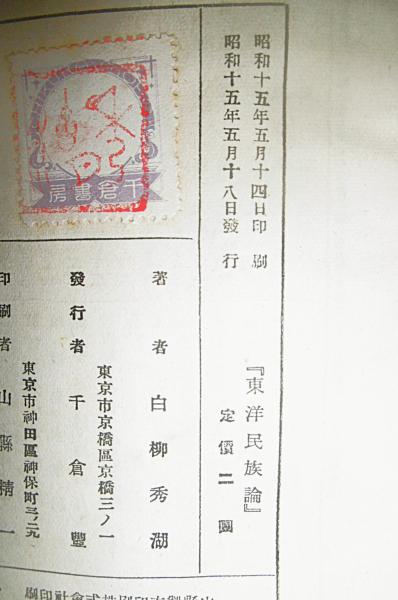 昭和十五年五月十四日印刷
昭和十五年五月十八日發行
『東洋民族論』
定價二圓
千倉書房
著者 白柳秀湖
東京市京橋區京橋三ノ一
發行者 千倉豐
東京市神田區神保町三ノ二九
印刷者 山縣精一